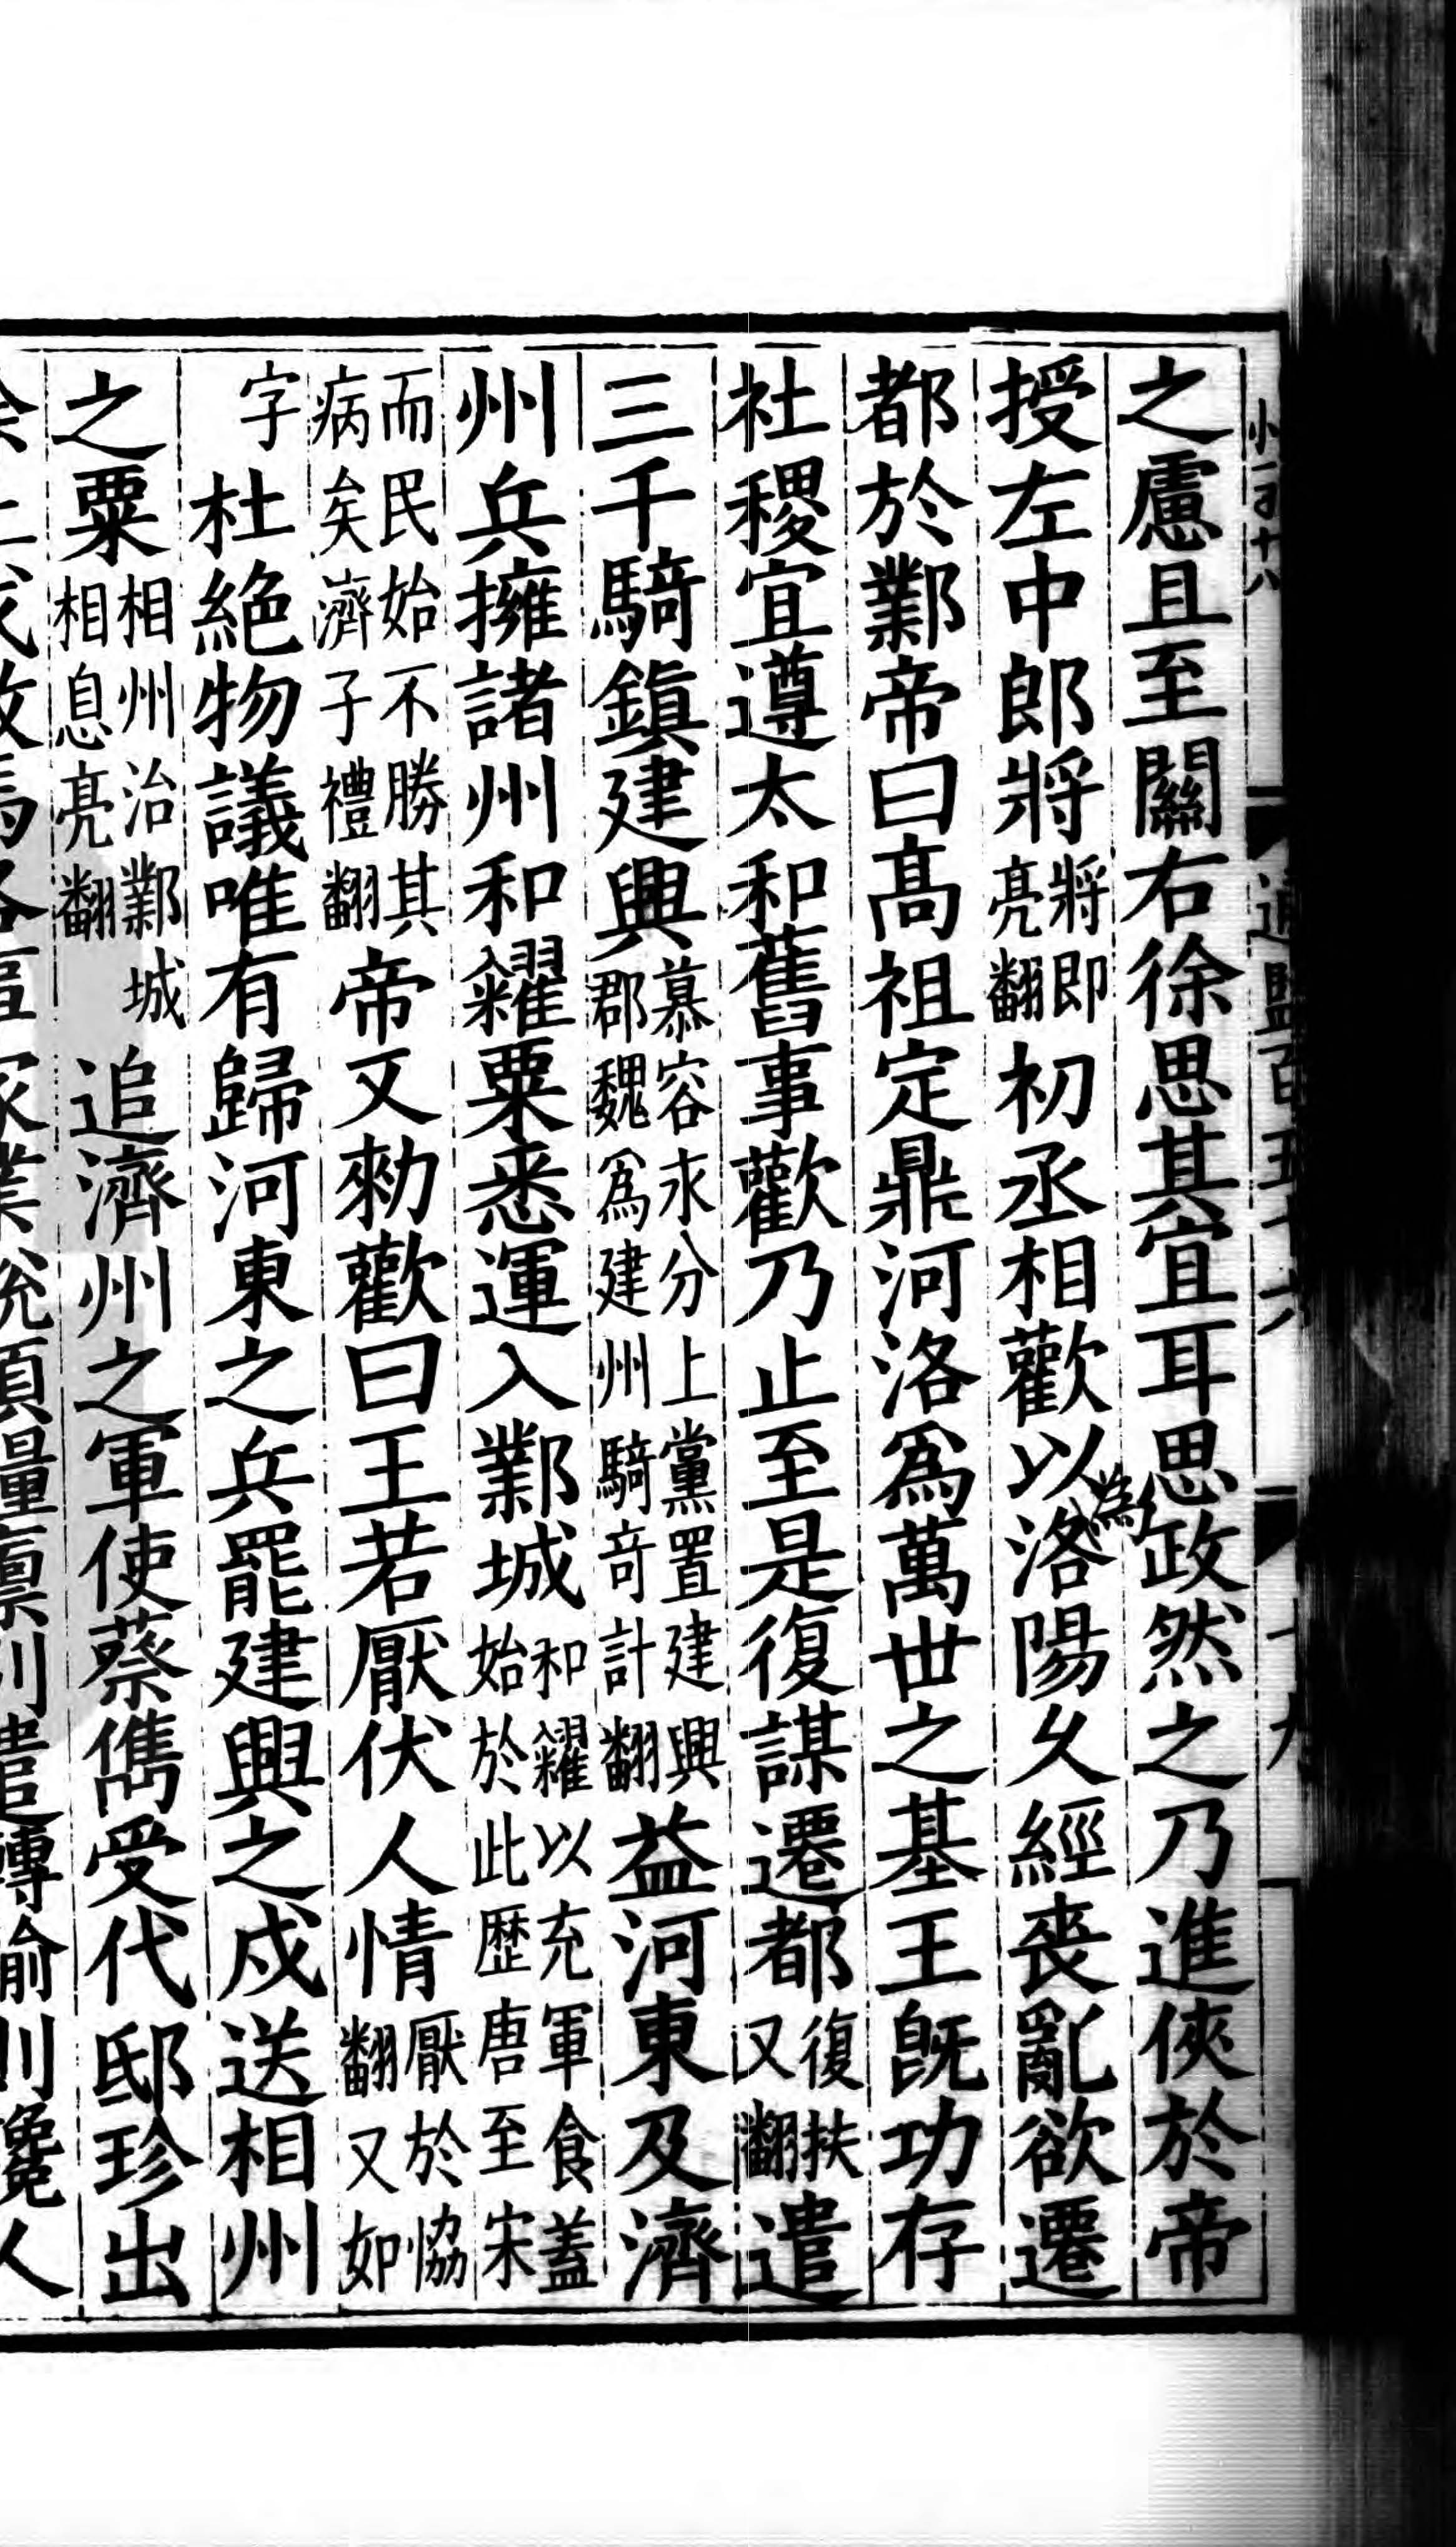 小一百十八
通鑑百五十六
十九
之慮且至關右徐思其宜耳思政然之乃進俠於帝
授左中郎將將即亮翻初丞相歡以洛陽久經喪亂欲遷
爲
都於鄴帝曰高祖定鼎河洛爲萬世之基王旣功存
社稷宜遵太和舊事歡乃止至是復謀遷都復扶又翻遣
三千騎鎮建興慕容永分上黨置建興郡魏爲建州騎奇計翻益河東及濟
州兵擁諸州和糴粟悉運入鄴城和糴以充軍食蓋始於此歷唐至宋
而民始不勝其病矣濟子禮翻帝又勑歡曰王若厭伏人情厭於恊翻又如
字杜絕物議唯有歸河東之兵罷建興之戍送相州
之粟相州治鄴城相息亮翻追濟州之軍使蔡儁受代邸珍出